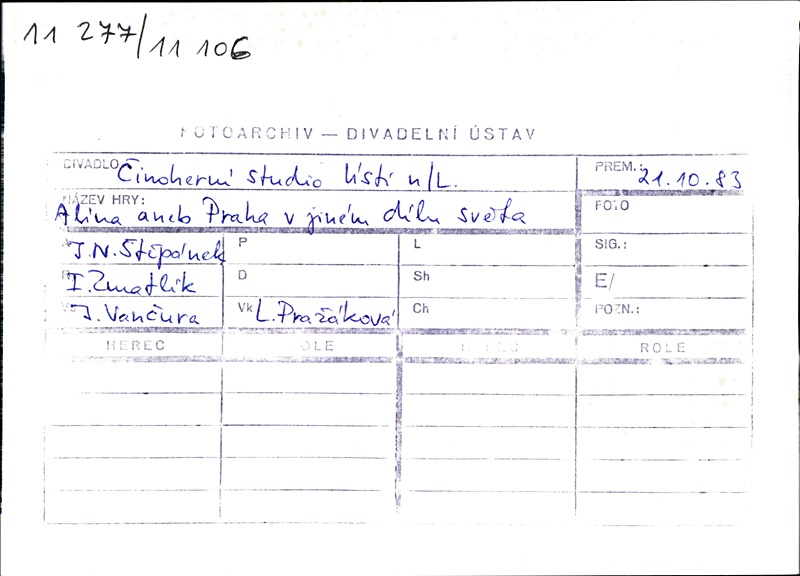 11 277/11 106
FOTOARCHIV — DIVADELNÍ ÚSTAV
DIVADLO Činoherní studio Ústí n/L. PREM.: 21.10.83
NÁZEV HRY: Alina aneb Praha v jiném dílu světa FOTO
J.N. Štěpánek P L SIG.:
I. Zmatlík D Sh E/
J. Vančura Vk L. Pražáková Ch POZN.:
HEREC ROLE HEREC ROLE